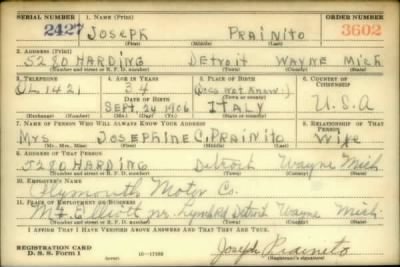 SERIAL NUMBER 1. NAME (Print) ORDER NUMBER
2427 JOSEPH PRAINITO 3602
(First) (Middle) (Last)
2. ADDRESS (Print)
5280 HARDING Detroit WAYNE Mich
(Number and street or R. F. D. number) (Town) (County) (State)
3. TELEPHONE 4. AGE IN YEARS 5. PLACE OF BIRTH 6. COUNTRY OF CITIZENSHIP
OL 1421 34 (Does Not Know)
DATE OF BIRTH
Sept. 24 1906 ITALY U.S.A
(Exchange) (Number) (Mo.) (Day) (Yr.) (State or country)
7. NAME OF PERSON WHO WILL ALWAYS KNOW YOUR ADDRESS 8. RELATIONSHIP OF THAT PERSON
Mrs JOSEPHINE C. PRAINITO Wife
(Mr., Mrs., Miss) (First) (Middle) (Last)
9. ADDRESS OF THAT PERSON
5280 HARDING Detroit Wayne Mich
(Number and street or R. F. D. number) (Town) (County) (State)
10. EMPLOYER'S NAME
Plymouth Motor Co.
11. PLACE OF EMPLOYMENT OR BUSINESS
Mt. Elliott nr. Lynch Rd Detroit Wayne Mich.
(Number and street or R. F. D. number) (Town) (County) (State)
I AFFIRM THAT I HAVE VERIFIED ABOVE ANSWERS AND THAT THEY ARE TRUE.
REGISTRATION CARD
D. S. S. Form 1 (over) Joseph Prainito
(Registrant's signature)